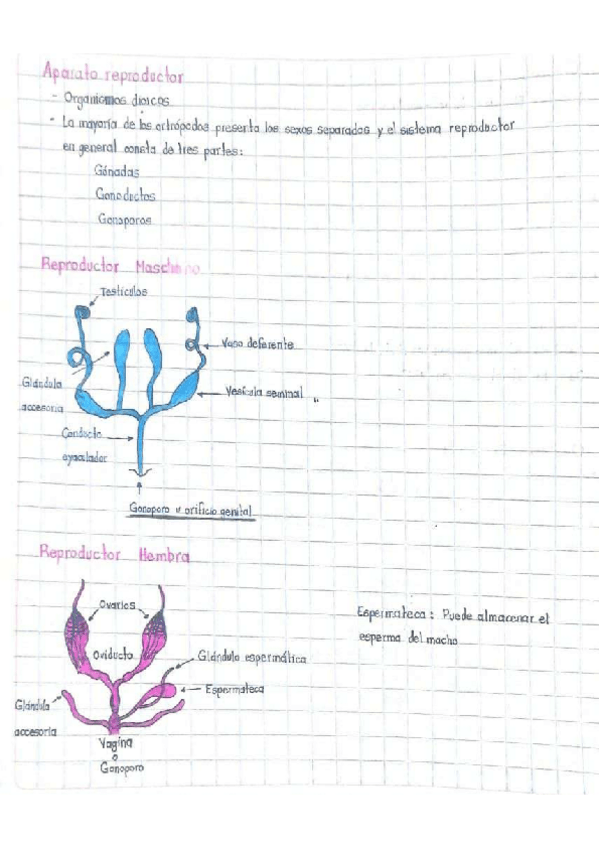 Aparato reproductor
- Organismos dioicos
- La mayoría de los artrópodos presenta los sexos separados y el sistema reproductor
en general consta de tres partes:
Gónadas
Gonoductos
Gonoporos
Reproductor Masculino
Testículos
Vaso deferente
Glándula
accesoria
Vesícula seminal
Conducto
eyaculador
Gonoporo u orificio genital
Reproductor Hembra
Ovarios
Espermateca: Puede almacenar el
esperma del macho
Oviducto
Glándula espermática
Espermateca
Glándula
accesoria
Vagina
o
Gonoporo